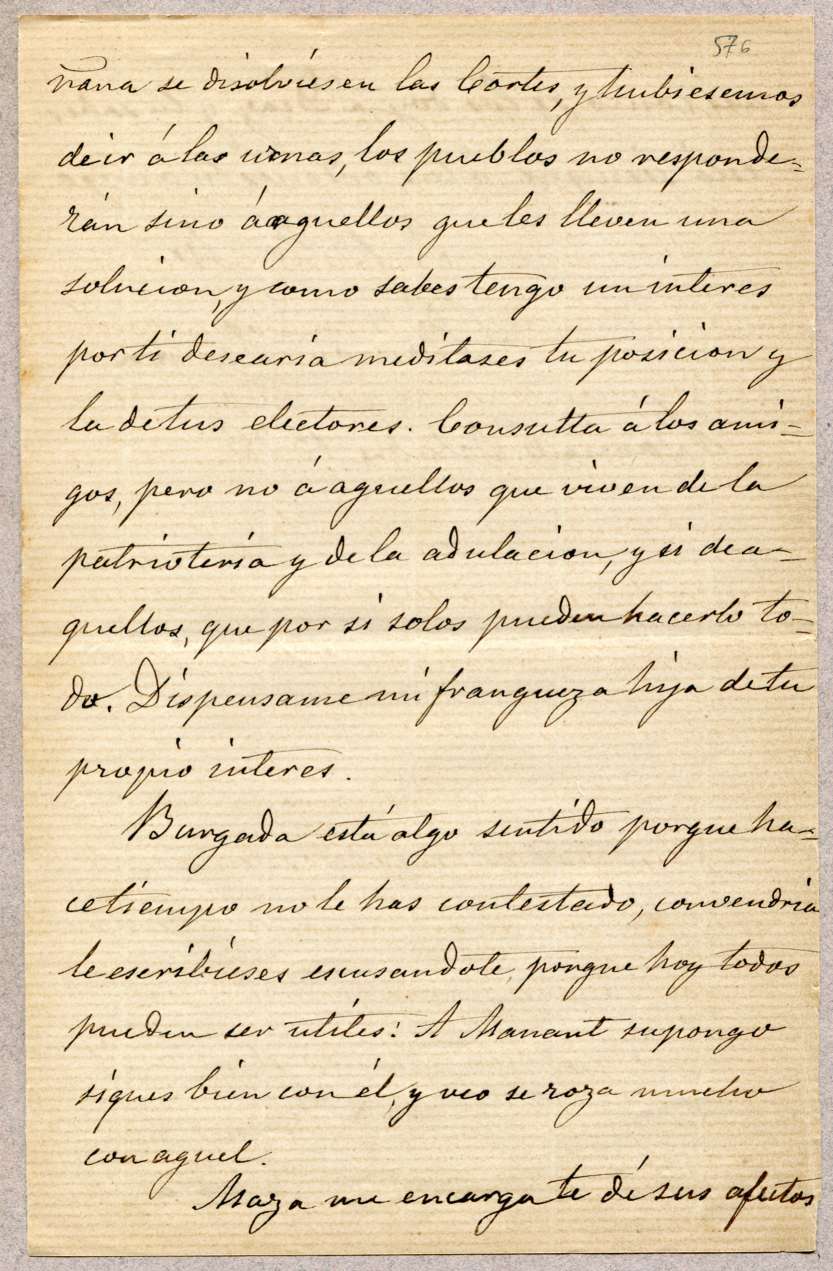 576
ñana se disolviesen las Cortes, y hubiesemos
de ir á las urnas, los pueblos no responde-
rán sino á aquellos que les lleven una
solucion, y como sabes tengo un interes
por ti desearia meditases tu posicion y
la de tus electores. Consulta á los ami-
gos, pero no á aquellos que viven de la
patriotería y de la adulacion, y si de a-
quellos, que por si solos pueden hacerlo to-
do. Dispensame mi franqueza hija de tu
propio interes.
Burgada está algo sentido porque ha-
ce tiempo no le has contestado, convendria
le escribieses escusandote, porque hoy todos
pueden ser utiles: A Manant supongo
sigues bien con él, y veo se roza mucho
con aquel.
Maza me encarga te dé sus afectos